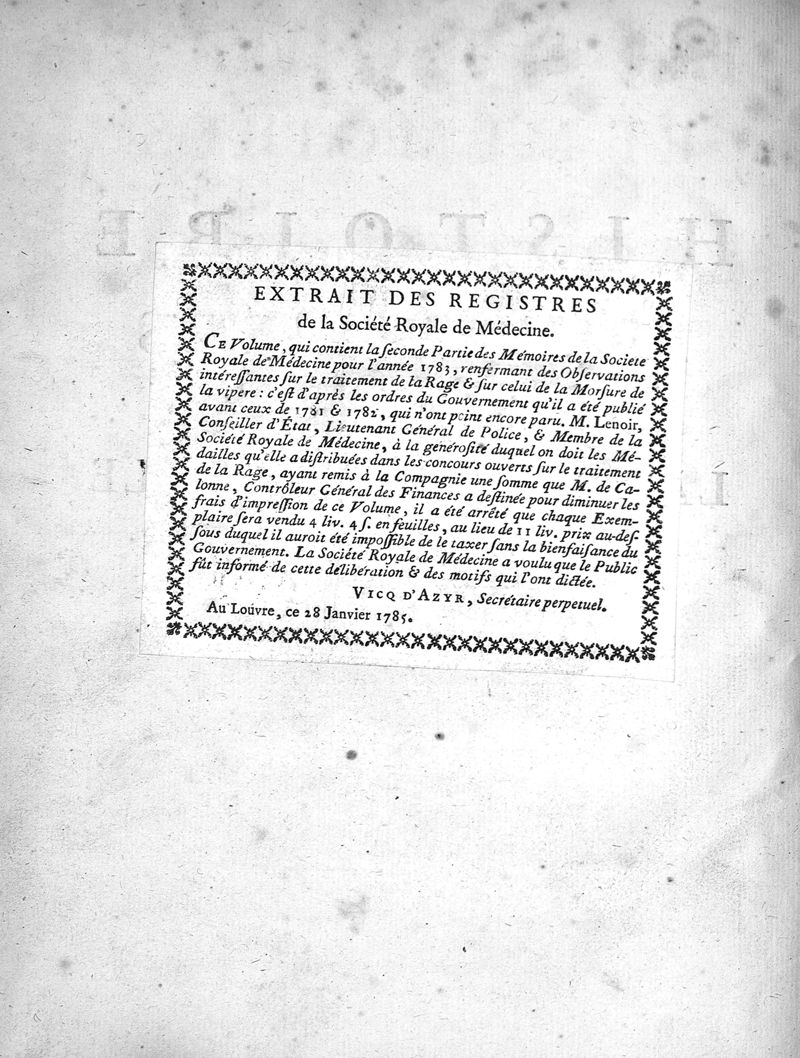 HISTOIRE
EXTRAIT DES REGISTRES
de la Société Royale de Médecine.
CE Volume, qui contient la ſeconde Partie des Mémoires de la Societe
Royale de Médecine pour l'année 1783, renfermant des Obſervations
intéreſſantes ſur le traitement de la Rage & ſur celui de la Morſure de
la vipere : c'eſt d'après les ordres du Gouvernement qu'il a été publié
avant ceux de 1781 & 1782, qui n'ont point encore paru. M. Lenoir,
Conſeiller d'État, Lieutenant Général de Police, & Membre de la
Société Royale de Médecine, à la généroſité duquel on doit les Mé-
dailles qu'elle a diſtribuées dans les concours ouverts ſur le traitement
de la Rage, ayant remis à la Compagnie une ſomme que M. de Ca-
lonne, Contrôleur Général des Finances a deſtinée pour diminuer les
frais d'impreſſion de ce Volume, il a été arrêté que chaque Exem-
plaire ſera vendu 4 liv. 4 ſ. en feuilles, au lieu de 11 liv. prix au-deſ-
ſous duquel il auroit été impoſſible de le taxer ſans la bienfaiſance du
Gouvernement. La Société Royale de Médecine a voulu que le Public
fût informé de cette délibération & des motifs qui l'ont dictée.
VICQ D'AZYR, Secrétaire perpetuel.
Au Louvre, ce 28 Janvier 1785.